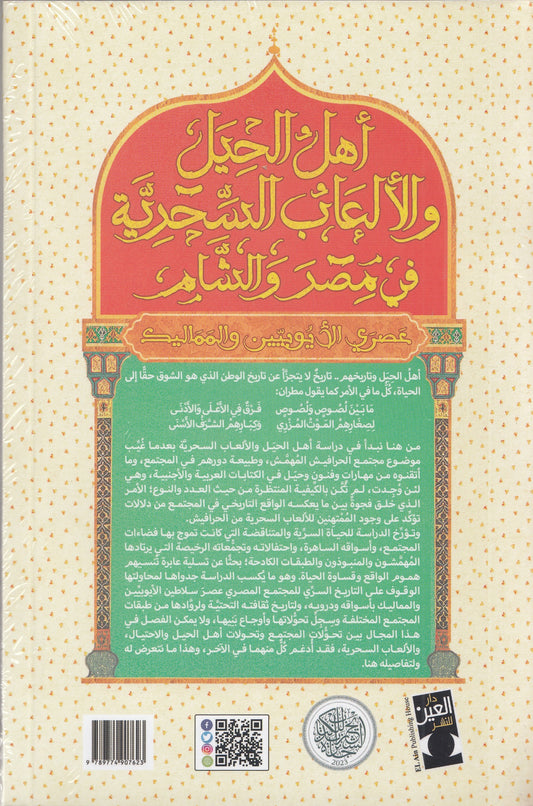 أهل الحِيَل
والألعابُ السِّحريَّة
في مِصرَ والشَّام
عَصرَي الأيُّوبيِّين والمَماليك
أهلُ الحيَل وتاريخهم .. تاريخٌ لا يتجزَّأ عن تاريخ الوطن الذي هو السَّوق حقًّا إلى
الحياة، كُلُّ ما في الأمر كما يقول مطران:
مَا بَيْنَ لُصُوصٍ وَلُصُوص فَرْقٌ فِي الأَعْلَى وَالأَدْنَى
لِصِغَارِهِمُ المَوْتُ المُزْرِي وَكِبَارِهِمُ الشَّرَفُ الأَسْنَى
من هنا نبدأ في دراسة أهل الحِيَل والألعاب السحريَّة بعدما غُيِّب
موضوع مجتمع الحرافيش المُهمَّش، وطبيعة دورهم في المجتمع، وما
أتقنوه من مهارات وفنون وحيَل في الكتابات العربية والأجنبية، وهي
لئن وُجدت، لم تكُن بالكيفية المنتظَرة من حيث العدد والنوع؛ الأمر
الذي خلق فجوةً بين ما يعكسه الواقع التاريخي في المجتمع من دلالات
تؤكد على وجود المُمتهنين للألعاب السحرية من الحرافيش.
وتؤرِّخ الدراسة للحياة السرِّية والمتناقضة التي كانت تموج بها فضاءات
المجتمع، وأسواقه الساهرة، واحتفالاته وتجمُّعاته الرخيصة التي يرتادها
المهمَّشون والمنبوذون والطبقات الكادحة؛ بحثًا عن تسلية عابرة تُنسيهم
هموم الواقع وقساوة الحياة. وهو ما يُكسب الدراسة جدواها لمحاولتها
الوقوف على التاريخ السرِّي للمجتمع المصري عصرَ سلاطين الأيوبيِّين
والمماليك بأسواقه ودروبه، ولتاريخ ثقافته التحتيَّة ولروَّادها من طبقات
المجتمع المختلفة وسِجلِّ تحوُّلاتها وأوجاع بَنِيها، ولا يمكن الفصل في
هذا المجال بين تحوُّلات المجتمع وتحولات أهل الحيل والاحتيال،
والألعاب السحرية، فقد أدغم كُلٌّ منهما في الآخر، وهذا ما نتعرض له
ولتفاصيله هنا.
9 789774 907623
2023
دار
العين
للنشر
EL Ain Publishing House